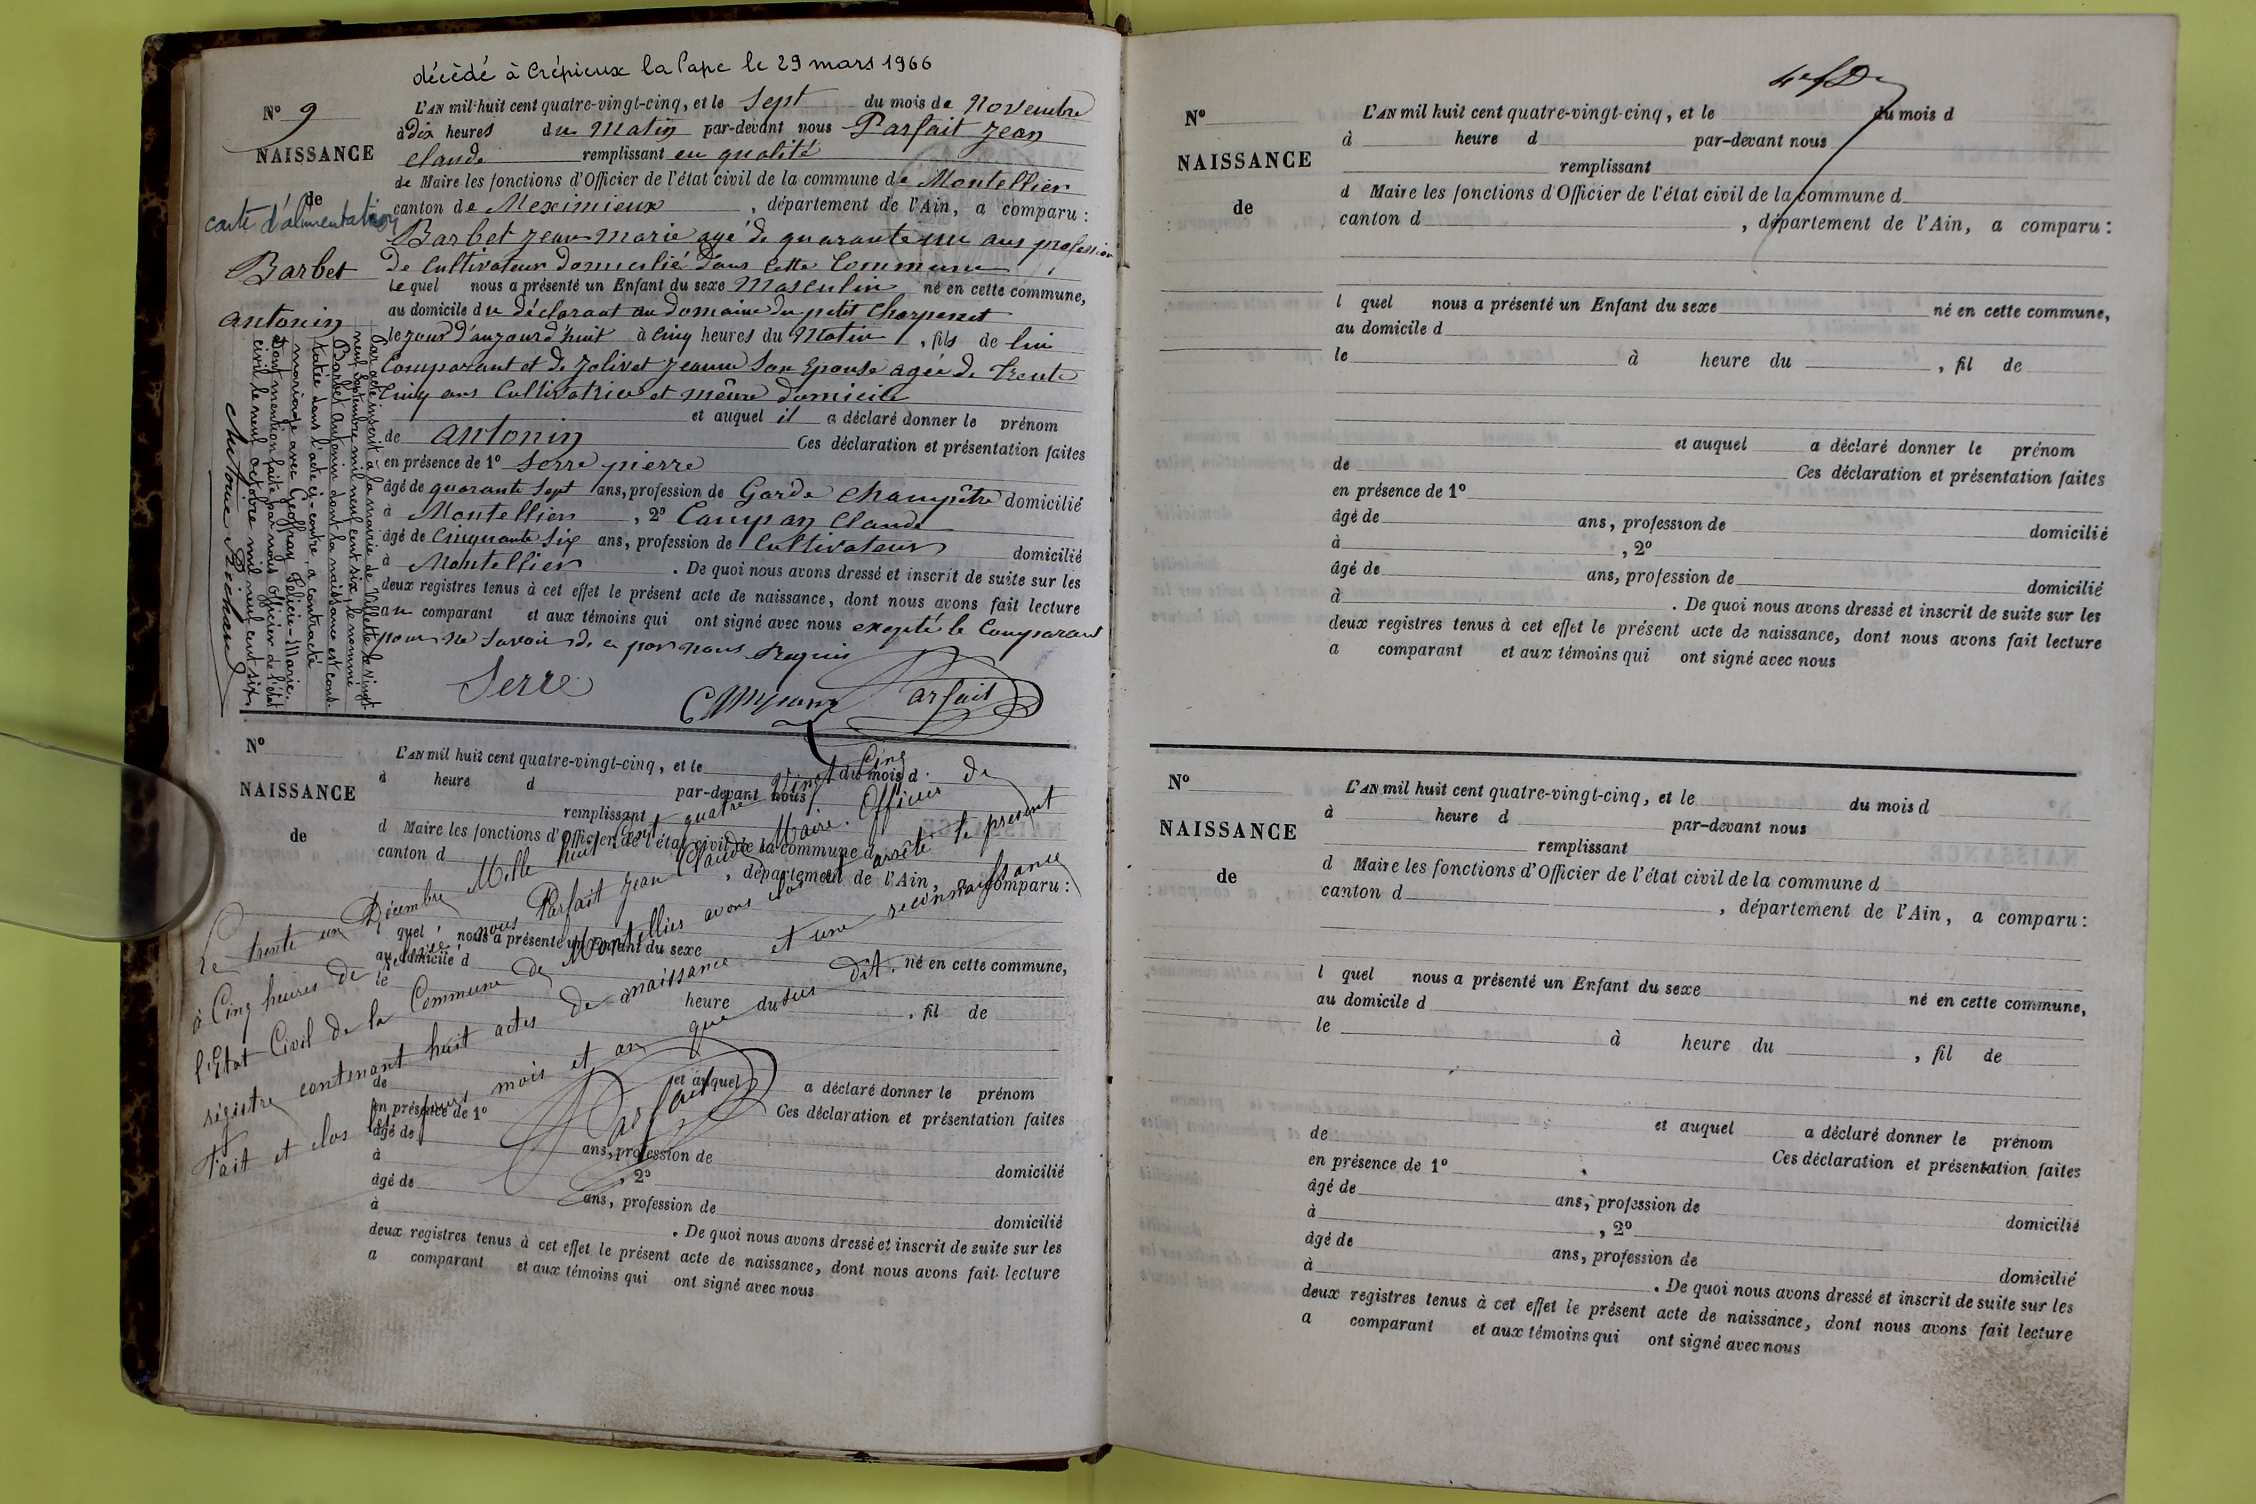 décédé à Crépieux la Pape le 29 mars 1966
N° 9
NAISSANCE
de
carte d'alimentation
Barbet
Antonin
L'AN mil huit cent quatre-vingt-cinq, et le sept du mois de Novembre
à Dix heures du Matin par-devant nous Parfait Jean
Claude remplissant en qualité
de Maire les fonctions d'Officier de l'état civil de la commune de Montellier
canton de Meximieux, département de l'Ain, a comparu :
Barbet Jean Marie agé de quarante un ans profession
de Cultivateur domicilié dans cette Commune
Lequel nous a présenté un Enfant du sexe Masculin né en cette commune,
au domicile du déclarant au domaine du petit Charpenet
le jour d'aujourd'huit à Cinq heures du Matin, fils de lui
Comparant et de Jolivet Jeanne Son Epouse agée de Trente
Cinq ans Cultivatrice et même domicile
et auquel il a déclaré donner le prénom
de Antonin Ces déclaration et présentation faites
en présence de 1° Serre pierre
âgé de quarante sept ans, profession de Garde Champêtre domicilié
à Montellier, 2° Campan Claude
âgé de Cinquante Six ans, profession de Cultivateur domicilié
à Montellier. De quoi nous avons dressé et inscrit de suite sur les
deux registres tenus à cet effet le présent acte de naissance, dont nous avons fait lecture
au comparant et aux témoins qui ont signé avec nous excepté le Comparant
pour ne Savoir de ce par nous Requis
Serre Campan Parfait
Par acte inscrit à la mairie de Villette le vingt-
neuf Septembre mil neuf cent six, le nommé
Barbet Antonin dont la naissance est cons-
tatée dans l'acte ci-contre, a contracté
mariage avec Geoffray Félicie-Marie.
Dont mention faite par nous Officier de l'état
civil le neuf octobre mil neuf cent six
Antoine Richard
N°
NAISSANCE
de
L'AN mil huit cent quatre-vingt-cinq, et le du mois d
à heure d par-devant nous
remplissant
d Maire les fonctions d'Officier de l'état civil de la commune d
canton d, département de l'Ain, a comparu :
quel nous a présenté un Enfant du sexe né en cette commune,
au domicile d
le à heure du, fil de
et auquel a déclaré donner le prénom
de Ces déclaration et présentation faites
en présence de 1°
âgé de ans, profession de
à, 2° domicilié
âgé de ans, profession de
à domicilié
. De quoi nous avons dressé et inscrit de suite sur les
deux registres tenus à cet effet le présent acte de naissance, dont nous avons fait lecture
a comparant et aux témoins qui ont signé avec nous
Le trente un Décembre Mille huit Cent quatre Vingt Cinq
à Cinq heures de nous Parfait Jean Claude Maire. Officier de
l'Etat Civil de la Commune de Montellier avons clos et arrêté le présent
régistre contenant huit actes de naissance et une reconnaissance
Fait et clos les jours mois et an que susdit.
Parfait
N°
NAISSANCE
de
L'AN mil huit cent quatre-vingt-cinq, et le du mois d
à heure d par-devant nous
remplissant
d Maire les fonctions d'Officier de l'état civil de la commune d
canton d, département de l'Ain, a comparu :
l quel nous a présenté un Enfant du sexe né en cette commune,
au domicile d
le à heure du, fil de
et auquel a déclaré donner le prénom
de Ces déclaration et présentation faites
en présence de 1°
âgé de ans, profession de domicilié
à, 2°
âgé de ans, profession de domicilié
à. De quoi nous avons dressé et inscrit de suite sur les
deux registres tenus à cet effet le présent acte de naissance, dont nous avons fait lecture
a comparant et aux témoins qui ont signé avec nous
N°
NAISSANCE
de
L'AN mil huit cent quatre-vingt-cinq, et le du mois d
à heure d par-devant nous
remplissant
d Maire les fonctions d'Officier de l'état civil de la commune d
canton d, département de l'Ain, a comparu :
l quel nous a présenté un Enfant du sexe né en cette commune,
au domicile d
le à heure du, fil de
et auquel a déclaré donner le prénom
de Ces déclaration et présentation faites
en présence de 1°
âgé de ans, profession de domicilié
à, 2°
âgé de ans, profession de domicilié
à. De quoi nous avons dressé et inscrit de suite sur les
deux registres tenus à cet effet le présent acte de naissance, dont nous avons fait lecture
a comparant et aux témoins qui ont signé avec nous